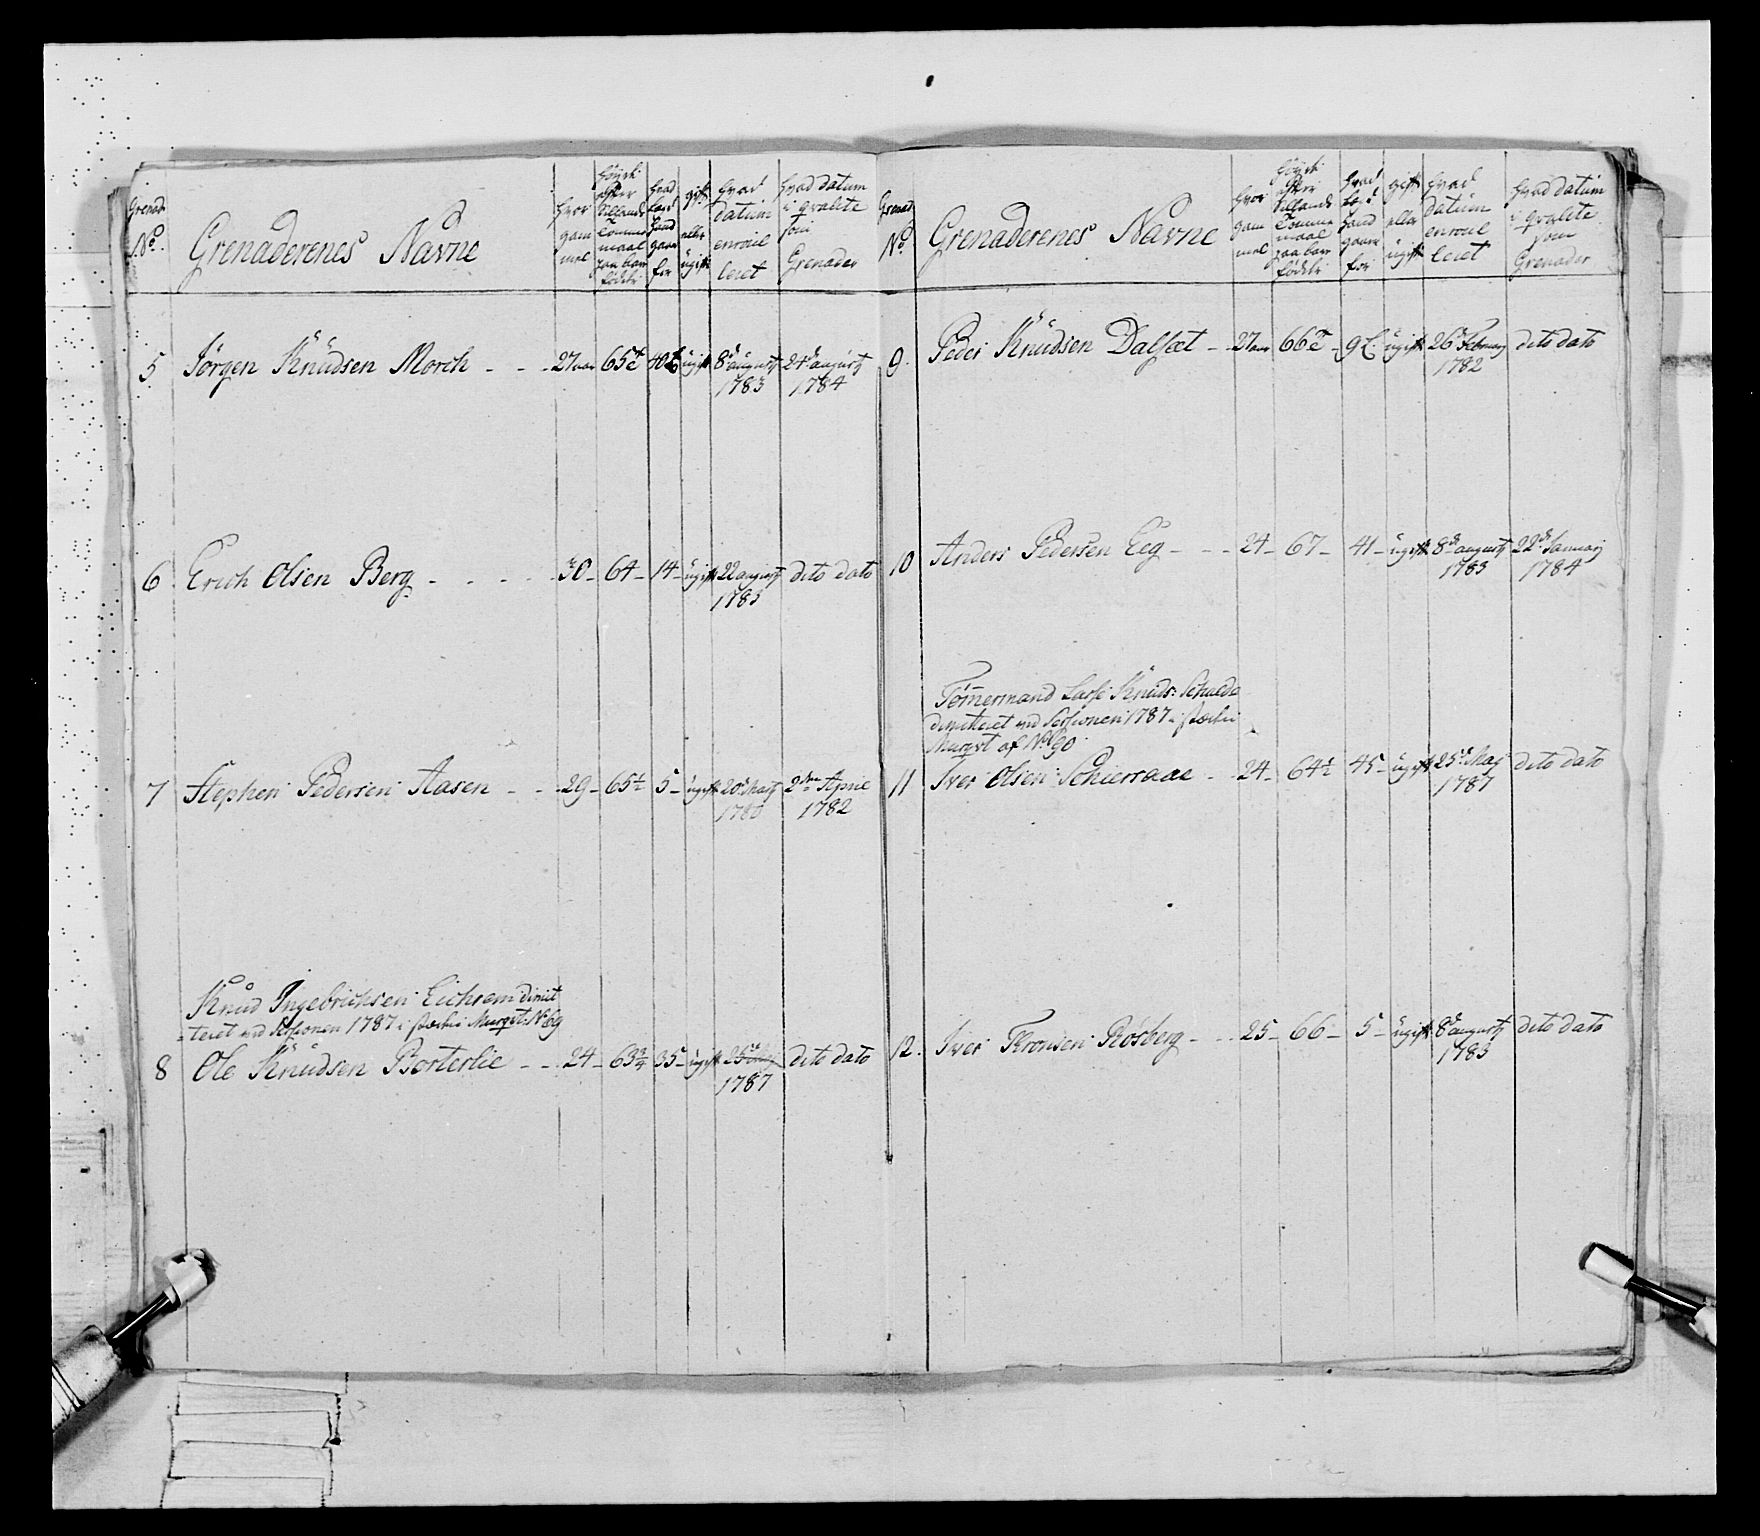 Grenad: No.
Grenaderenes Navne
hvor gam mel
høyde efter Sillands Tomme maal paa bare fødder
hvad land hand gaar for
gift eller ugift
hvad datum enroul leret
hvad datum i qvalite som Grenader
5 Jörgen Knudsen Morch - - - 27 aar 65 t 40 t ugift 8de augusty 1783 24de augusty 1784
6 Erich Olsen Berg - - - - - 30 - 64 - 14 - ugift 22 augusty 1783 dito dato
7 Stephen Pedersen Aasen - - - 29 - 65½ 5 - ugift 20de Maij 2den Aprie 1782
Knud Ingebrichsen Eichrem dimit
teret ved Sessionen 1787 i stædet Murqvt: No 69
8 Ole Knudsen Borterlie - - - 24 - 63¾ 35 - ugift 25de 1787 dito dato
Grenad: No.
Grenaderenes Navne
hvor gam mel
høyde efter Sillands Tomme maal paa bare fødder
hvad land hand gaar for
gift eller ugift
hvad datum enroul leret
hvad datum i qvalite som Grenader
9. Peder Knudsen Dalsæt - 27 aar 66 t - 9 t. ugift 26de Februarj 1782 dito dato
10 Anders Pedersen Eeg - - - 24 - 67 - 41 - ugift 8de augusty 1783 22de Januarj 1784
Tømermand Lasse Knuds: Schulde
dimitteret ved Sessionen 1787 i stædet
Murqvt af No 90
11 Iver Olsen Schierraae - - 24 - 64½ 45 - ugift 25de Maj 1787 dito dato
12. Iver Tronsen Rosberg - - - 25 - 66 - 5 - ugift 8de augusty 1783 dito dato